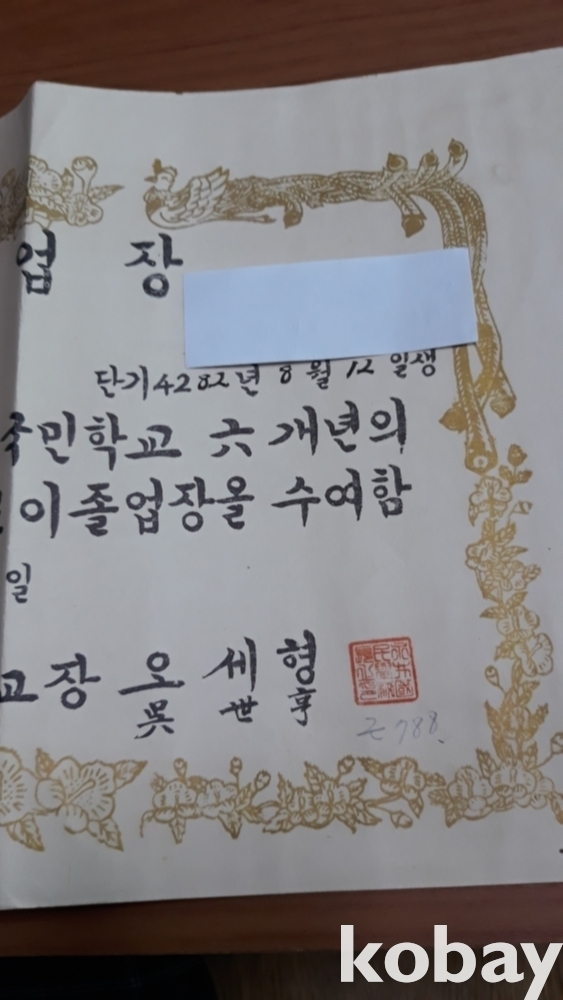 업 장
단기4282년 8월 12일생
국민학교 六 개년의
이 졸업장을 수여함
일
교장 오 세 형
吳 世 亨
kobay